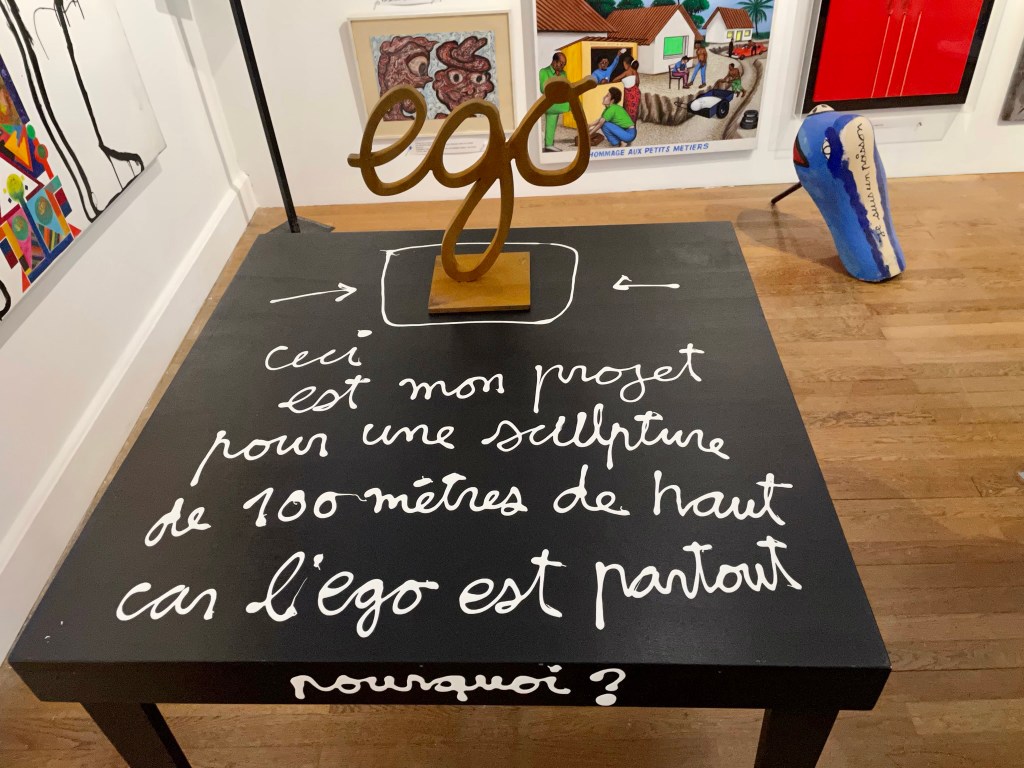 ego
HOMMAGE AUX PETITS METIERS
je suis un poisson
ceci
est mon projet
pour une sculpture
de 100 mètres de haut
car l'ego est partout
pourquoi ?